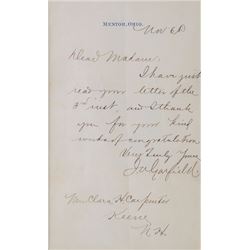 MENTOR, OHIO.
Nov 6
Dear Madame:
I have just
read your letter of the
3rd inst, and I thank
you for your kind
words of congratulation
Very Truly Yours
J A Garfield
Mrs Clara H. Carpenter
Keene
N. H.